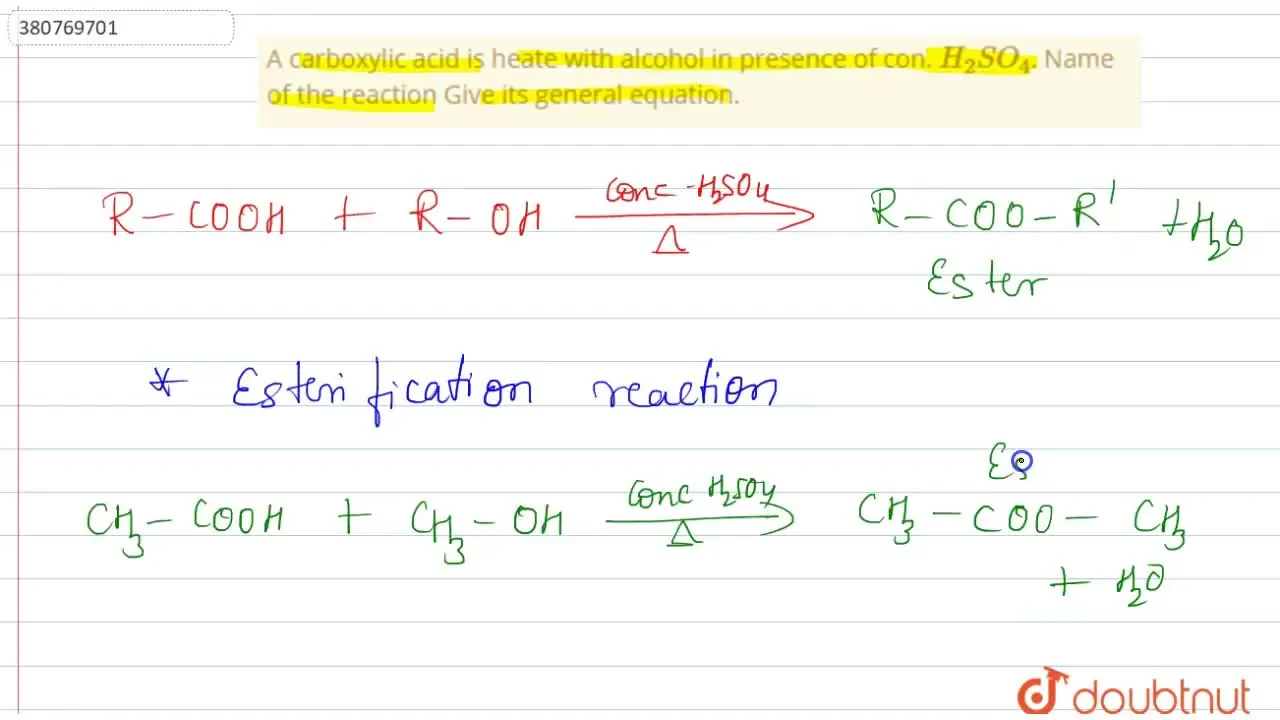 380769701
A carboxylic acid is heate with alcohol in presence of con. H₂SO₄. Name
of the reaction Give its general equation.
R — COOH + R — OH —Conc. H₂SO₄/Δ→ R — COO — R' + H₂O
Ester
* Esterification reaction
Es
CH₃ — COOH + CH₃ — OH —Conc H₂SO₄/Δ→ CH₃ — COO — CH₃
+ H₂O
doubtnut